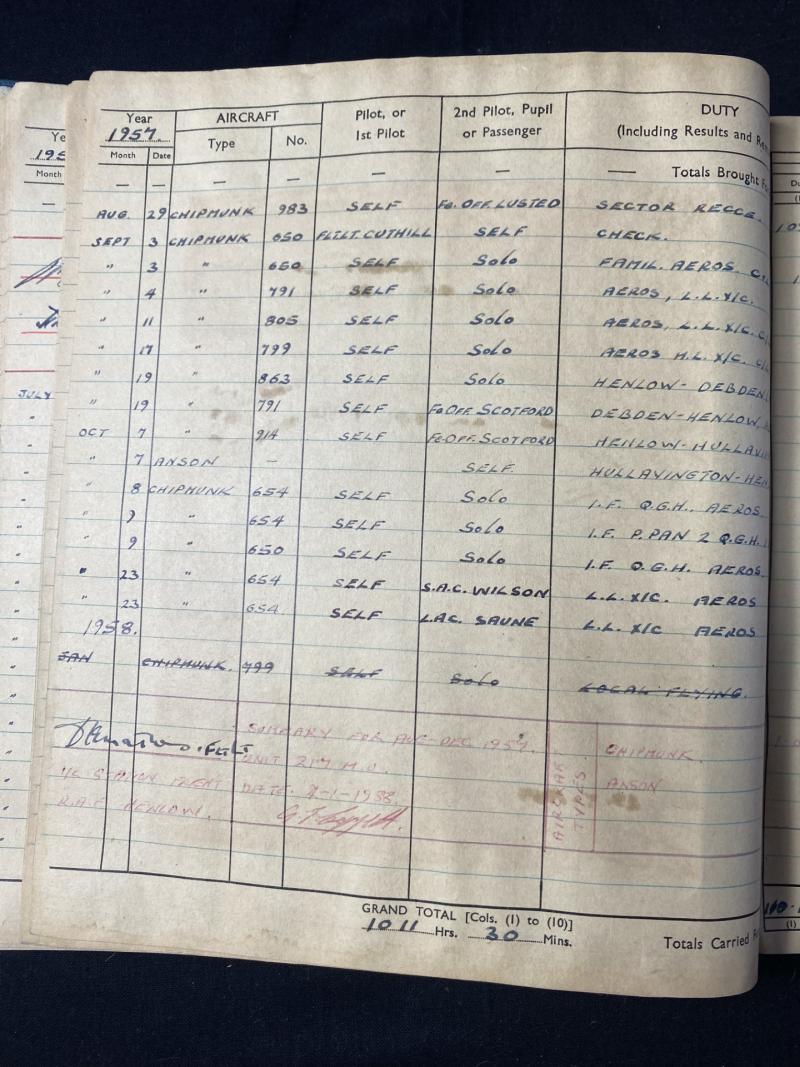 Year AIRCRAFT Pilot, or 2nd Pilot, Pupil DUTY
1957. Type No. 1st Pilot or Passenger (Including Results and Re
Month Date
— — — — — — —— Totals Brought F
AUG. 29 CHIPMUNK 983 SELF FG. OFF. LUSTED SECTOR RECCE.
SEPT 3 CHIPMUNK 650 FLT.LT. CUTHILL SELF CHECK.
" 3 " 650 SELF Solo FAMIL. AEROS.
" 4 " 791 SELF Solo AEROS, L.L. X/C.
" 11 " 805 SELF Solo AEROS, L.L. X/C.
" 17 " 799 SELF Solo AEROS H.L. X/C.
" 19 " 863 SELF Solo HENLOW- DEBDEN
" 19 " 791 SELF FG OFF. SCOTFORD DEBDEN-HENLOW
OCT 7 " 914 SELF FG OFF. SCOTFORD HENLOW-HULLAVIN
" 7 ANSON — SELF. HULLAVINGTON-HEN
" 8 CHIPMUNK 654 SELF Solo I.F. Q.G.H. AEROS.
" 9 " 654 SELF Solo I.F. P.PAN 2 Q.G.H.
" 9 " 650 SELF Solo I.F. Q.G.H. AEROS.
" 23 " 654 SELF S.A.C. WILSON L.L. X/C. AEROS
" 23 " 654 SELF L.A.C. SAUNE L.L. X/C AEROS
1958.
JAN CHIPMUNK. 799 SELF Solo LOCAL FLYING.
SUMMARY FOR AUG-DEC 1957. CHIPMUNK.
FLT UNIT 217 M.U. AIRCRAFT TYPES ANSON
STATION FLIGHT DATE. 1-1958
R.A.F HENLOW.
GRAND TOTAL [Cols. (1) to (10)]
1011 Hrs. 30 Mins. Totals Carried
Month
JULY
(1)